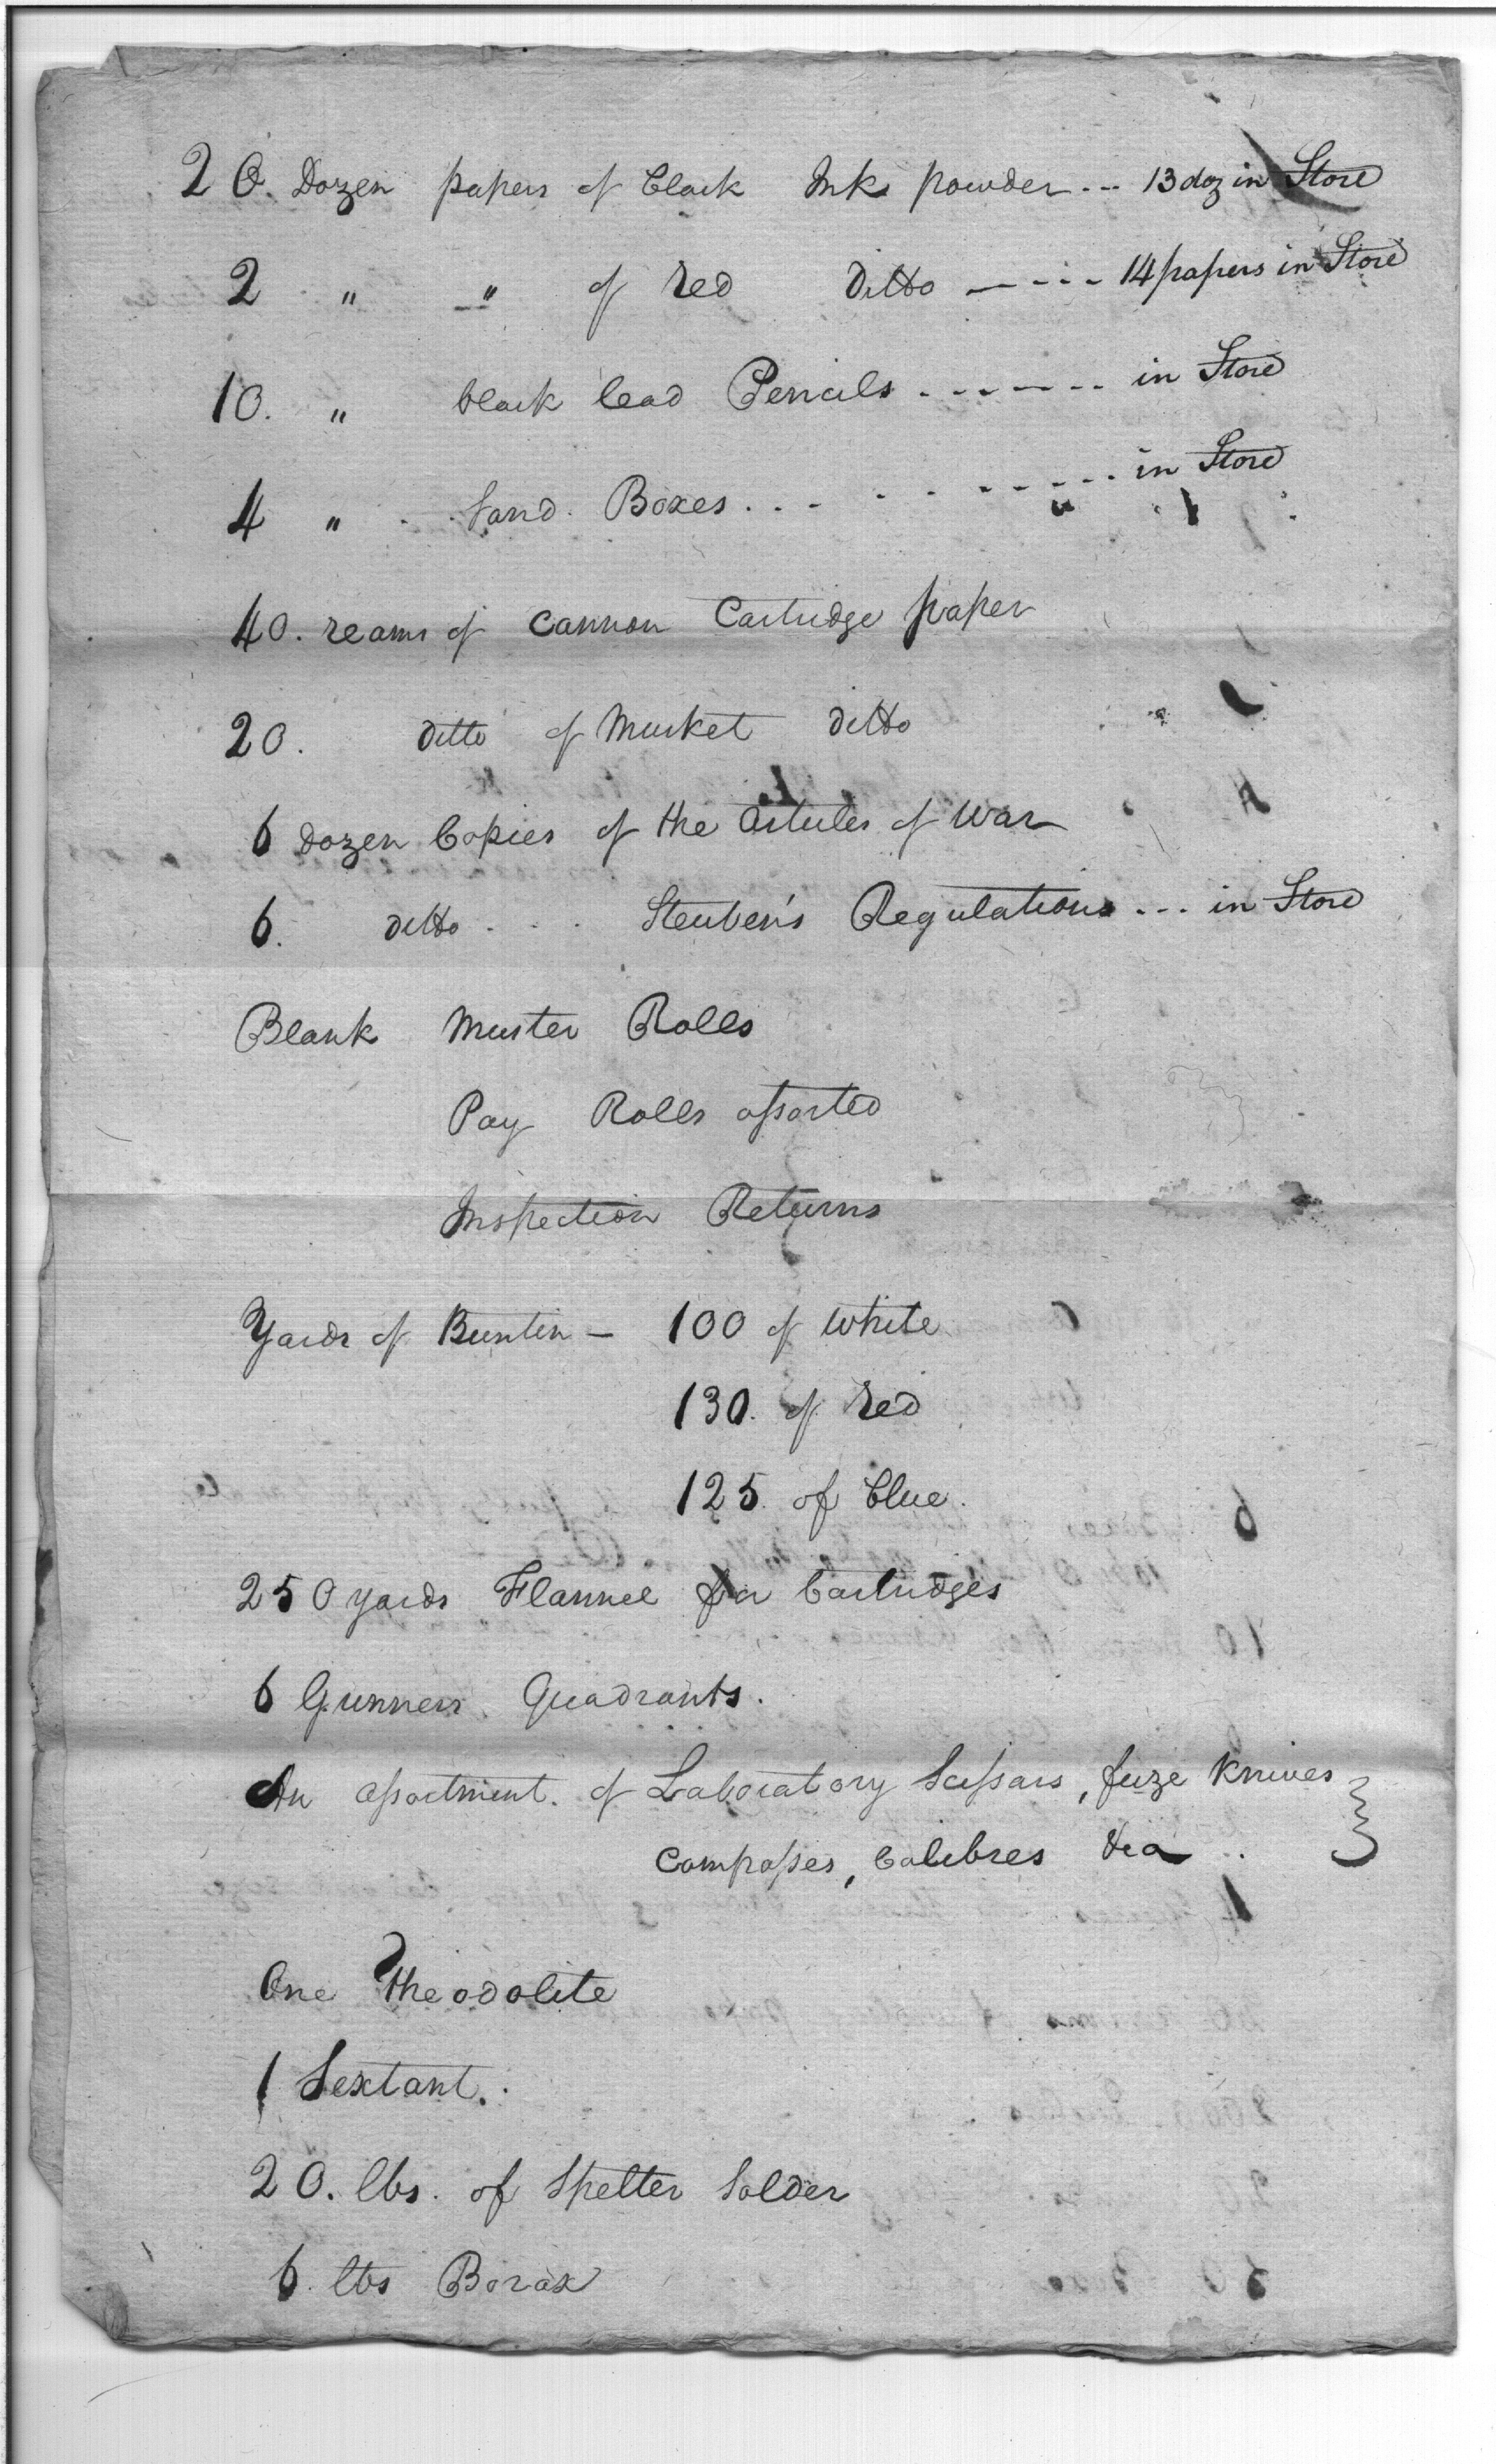 20. Dozen papers of black Ink powder --- 13 doz in Store
2 " " of red ditto ----- 14 papers in Store
10. " black lead Pencils ------- in Store
4 " Sand Boxes. . - - - - - - - - in Store
40. reams of Cannon Cartridge paper
20. ditto of Musket ditto
6 Dozen Copies of the Articles of War
6. ditto - - - Steuben's Regulations --- in Store
Blank Muster Rolls
Pay Rolls assorted
Inspection Returns
Yards of Buntin - 100 of White
130. of red
125 of blue.
250 yards Flannel for Cartridges
6 Gunners Quadrants.
An assortment of Laboratory Scissars, fuze knives
Compasses, Calibres &ca
One Theodolite
1 Sextant.
20. lbs. of Spelter Solder
6. lbs Borax